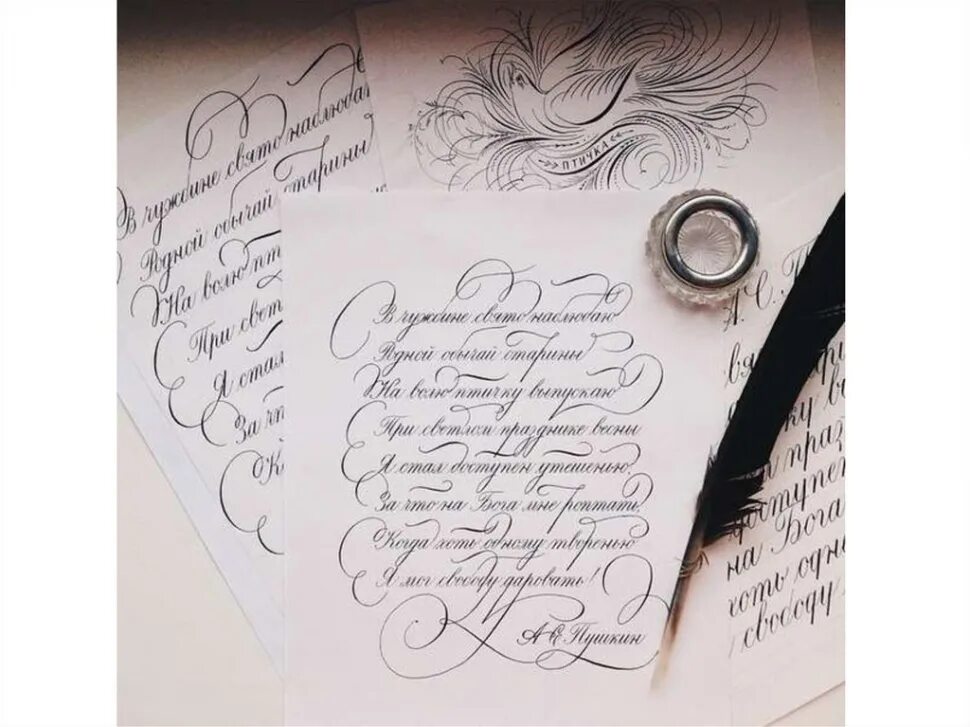 В чуждине свято наблюдаю
Родной обычай старины
На волю пт
При свет
Я стал
За чт
К
ПТИЧКА
В чуждине свято наблюдаю
Родной обычай старины
На волю птичку выпускаю
При светлом празднике весны
Я стал доступен утешенью,
За что на Бога мне роптать,
Когда хоть одному творенью
Я мог свободу даровать!
А С Пушкин
А. С. П
ку в
праз
доступен
на Бога
хоть одн
свободу